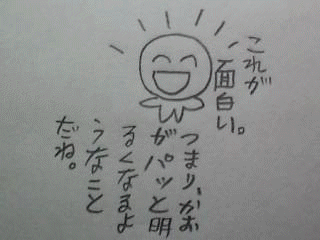 これが
面白い。
つまり、かお
がパッと明
るくなるよ
うなこと
だね。